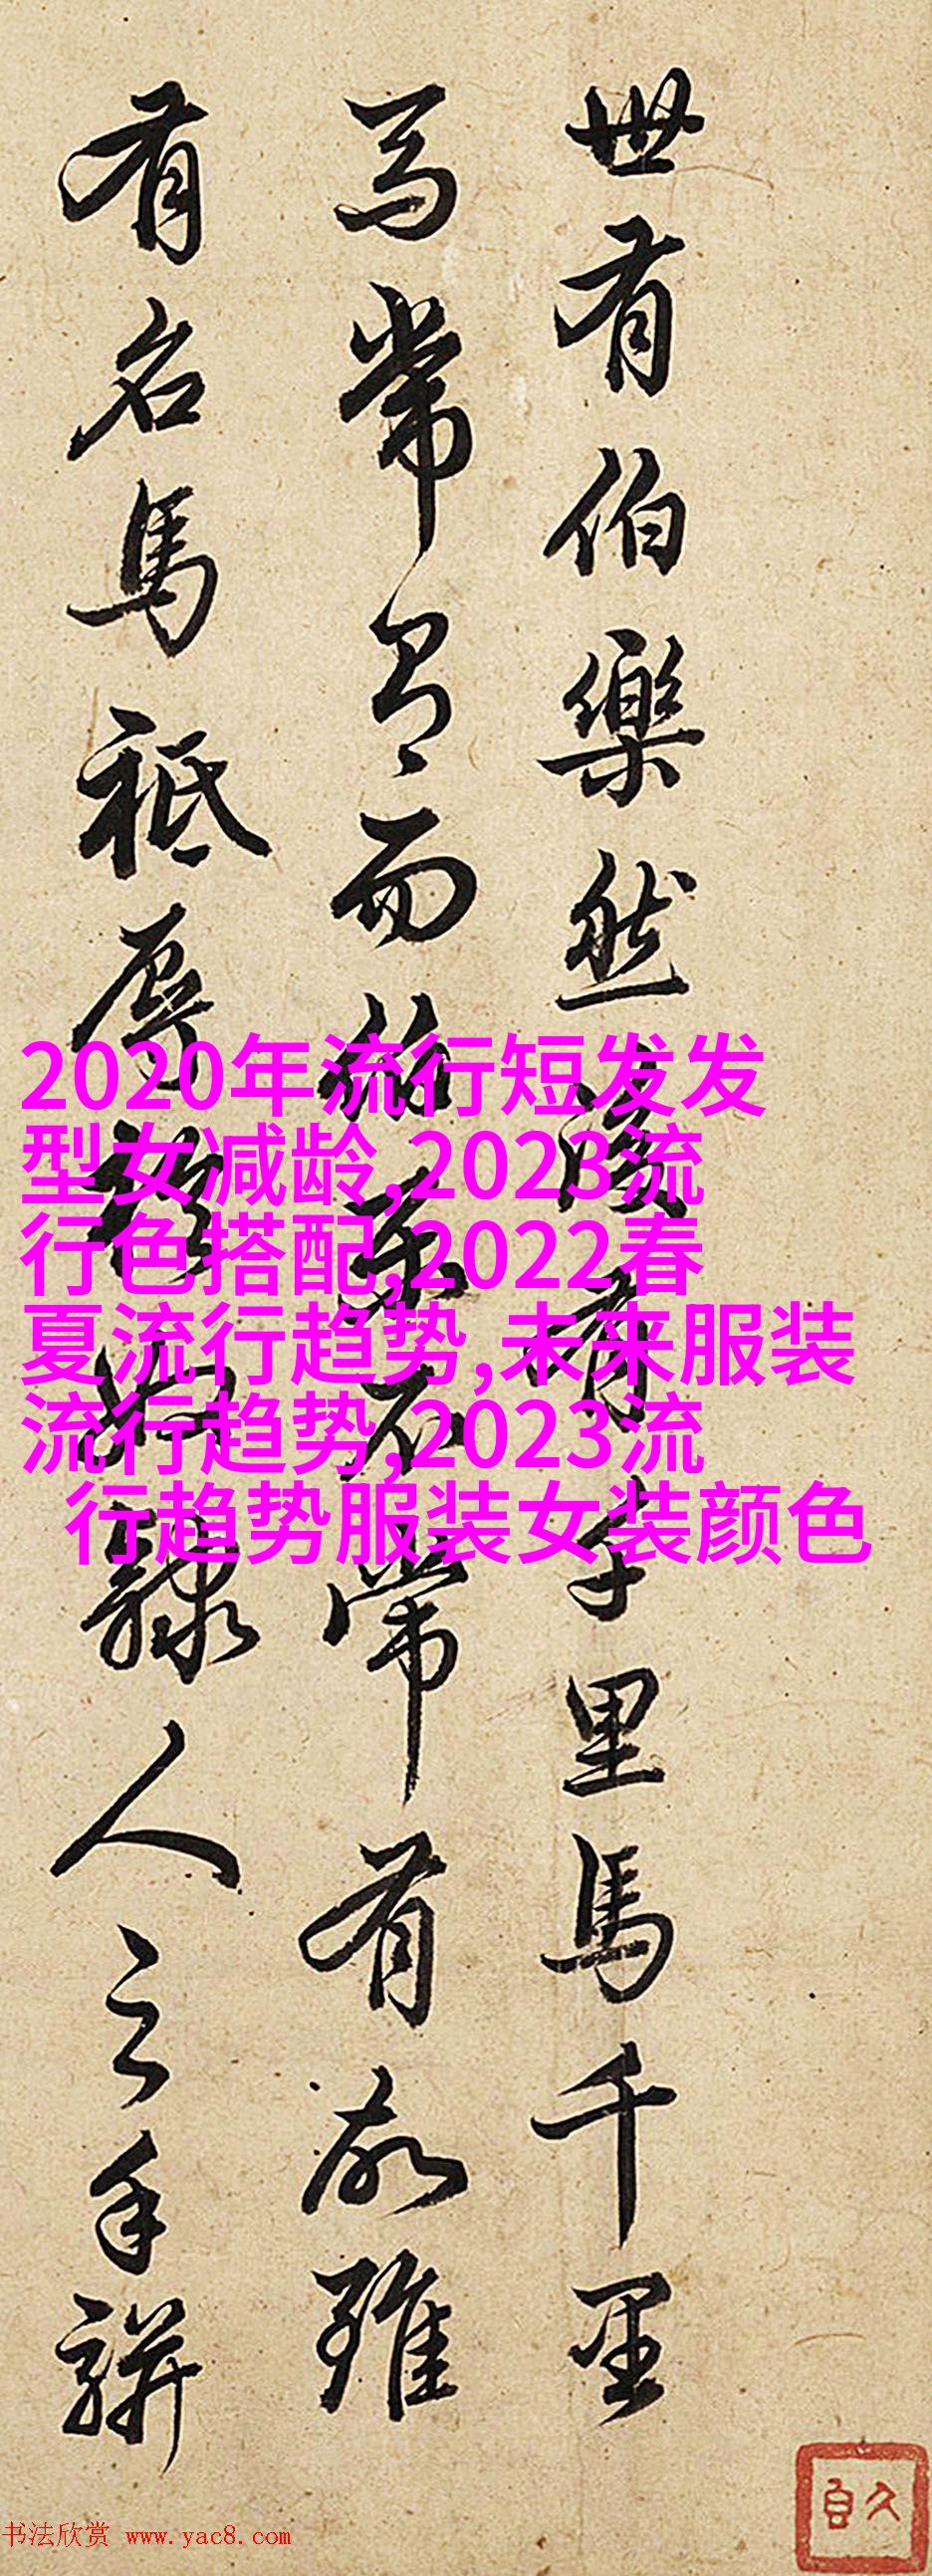 世有伯樂然後有千里馬千里
馬常有而伯樂不常有故雖
有名馬祗辱於奴隸人之手駢
2020年流行短发发
型女减龄,2023流
行色搭配,2022春
夏流行趋势,未来服装
流行趋势,2023流
行趋势服装女装颜色
书法欣赏 www.yac8.com